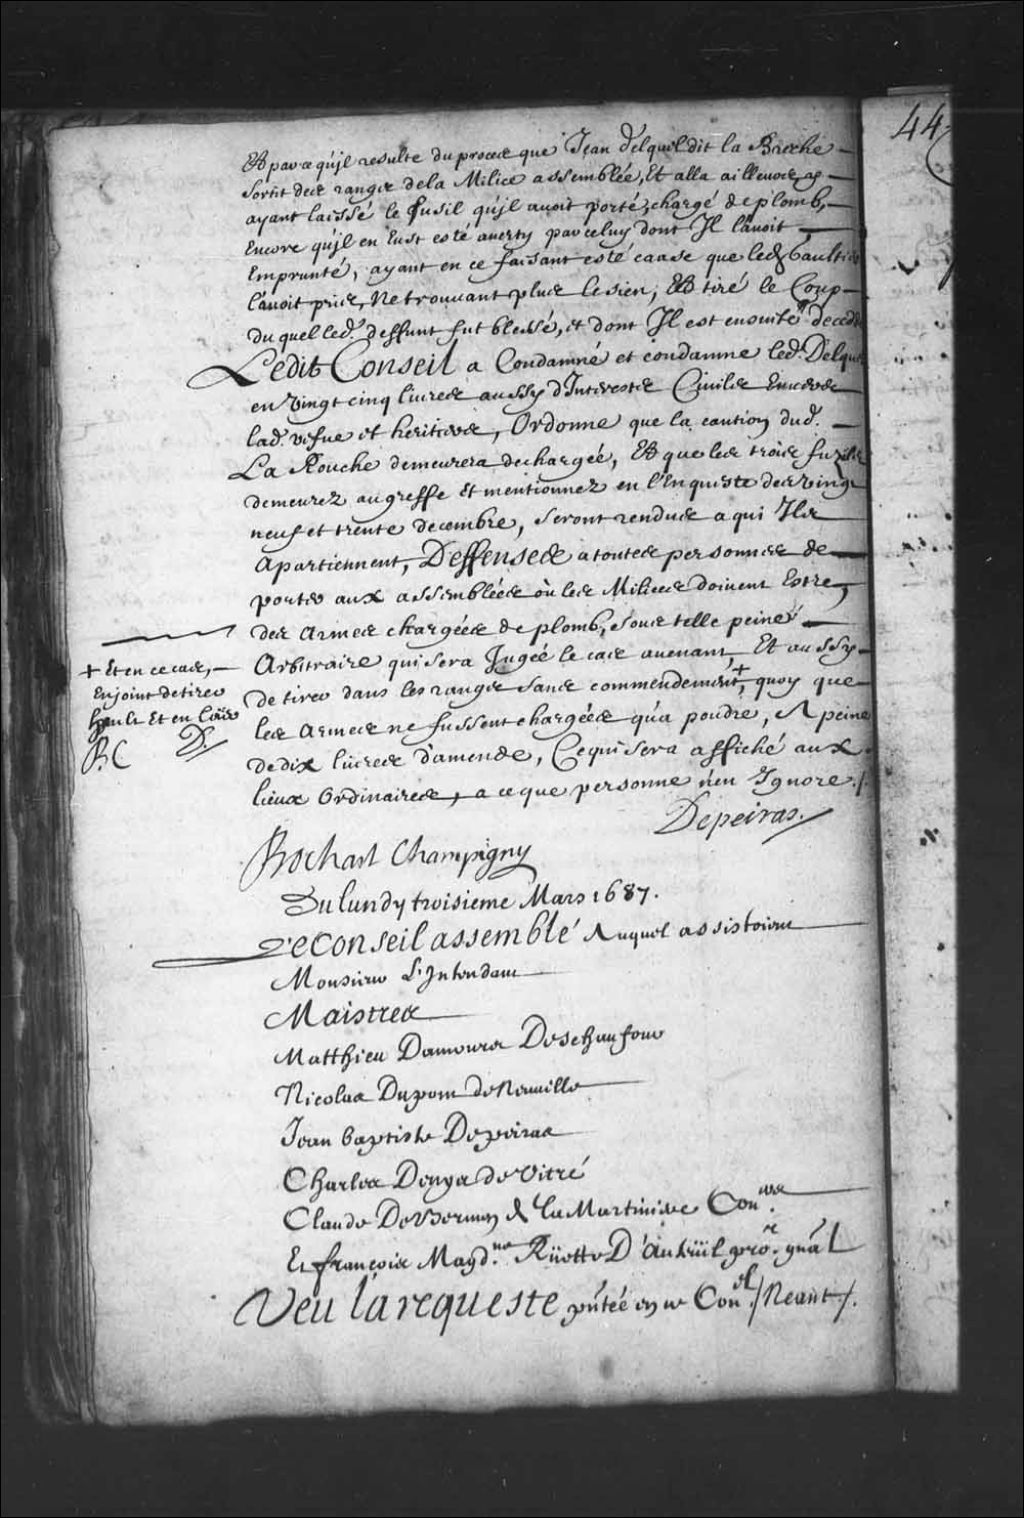 44
Et parce qu'jl resulte du procez que Jean Delquel dit la Bréche
sortit des rangs de la Milice assemblée, Et alla ailleurs
ayant laissé le fusil qu'jl auoit porté, chargé de plomb,
Encore qu'jl en Eust esté auerty par celuy dont Jl l'auoit
Emprunté, ayant en ce faisant esté cause que led. Gaultier
l'auoit pris, Ne trouuant plus le sien, Et tiré le Coup
du quel led. deffunt fut blessé, et dont Jl est ensuite decedé
Ledit Conseil a Condamné et condamne led. Delquel
en vingt cinq liures aussy d'Interests Ciuils Enuers
lad. vefue et heritiers, Ordonne que la caution dud.
La Rouche demeurera dechargée, Et que les trois fuzils
demeurez au greffe Et mentionnez en l'Enqueste des vingt
neuf et trente decembre, seront rendus a qui Jls
apartiennent, Deffenses a toutes personnes de
porter aux assemblées où les Milices doiuent Estre,
des armes chargées de plomb, sous telle peine
Arbitraire qui sera Jugée le cas auenant Et aussy
de tirer dans les rangs sans commendement +, quoy que
les armes ne fussent chargées qu'a poudre, A peine
de dix liures d'amende, Ce qui sera affiché aux
lieux Ordinaires, a ce que personne n'en Ignore ./.
+ Et en ce cas,
Enjoint de tirer
hault Et en l'air
B.C D.
Depeiras.
Bochart Champigny
Du lundy troisieme Mars 1687.
Le Conseil assemblé Auquel assistoient
Monsieur L'Intendant
Maistres
Matthieu Damours Deschaufour
Nicolas Dupont de Neuuille
Jean baptiste Depeiras
Charles Denys de Vitré
Claude De Bermen de la Martiniere Con.ers
Et françois Magd.ne Rüette D'Auteüil pro.r gnãl
Veu la requeste pñtée en ce Con.el / Neant /.